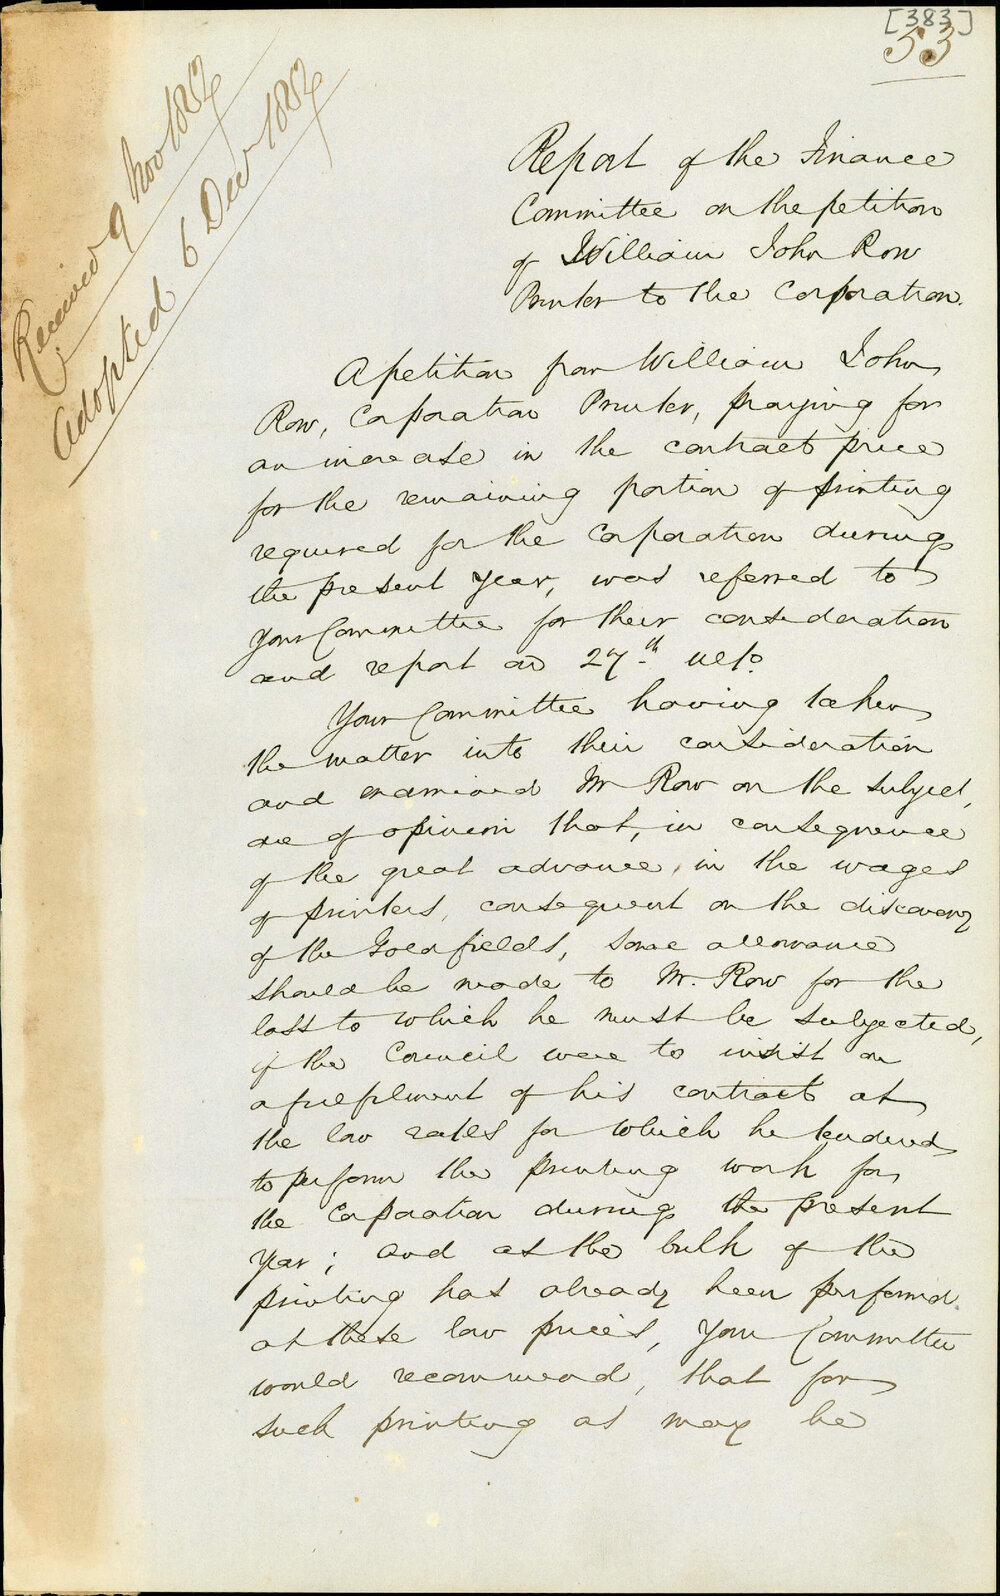 [383]
53
Received 9 Nov 1852
Adopted 6 Decr 1852
Report of the Finance
Committee on the petition
of William John Row
Printer to the Corporation.
A petition from William John
Row, Corporation Printer, praying for
an increase in the contract price
for the remaining portion of printing
required for the Corporation during
the present year, was referred to
Your Committee for their consideration
and report on 27th ulto.
Your Committee having taken
the matter into their consideration
and examined Mr Row on the subject,
are of opinion that, in consequence
of the great advance, in the wages
of printers, consequent on the discovery
of the Goldfields, some allowance
should be made to Mr. Row for the
loss to which he must be subjected,
if the Council were to insist on
a fulfilment of his contract at
the low rates for which he tendered
to perform the printing work for
the Corporation during the present
Year; and as the bulk of the
printing has already been performed
at these low prices, Your Committee
would recommend, that for
such printing as may be